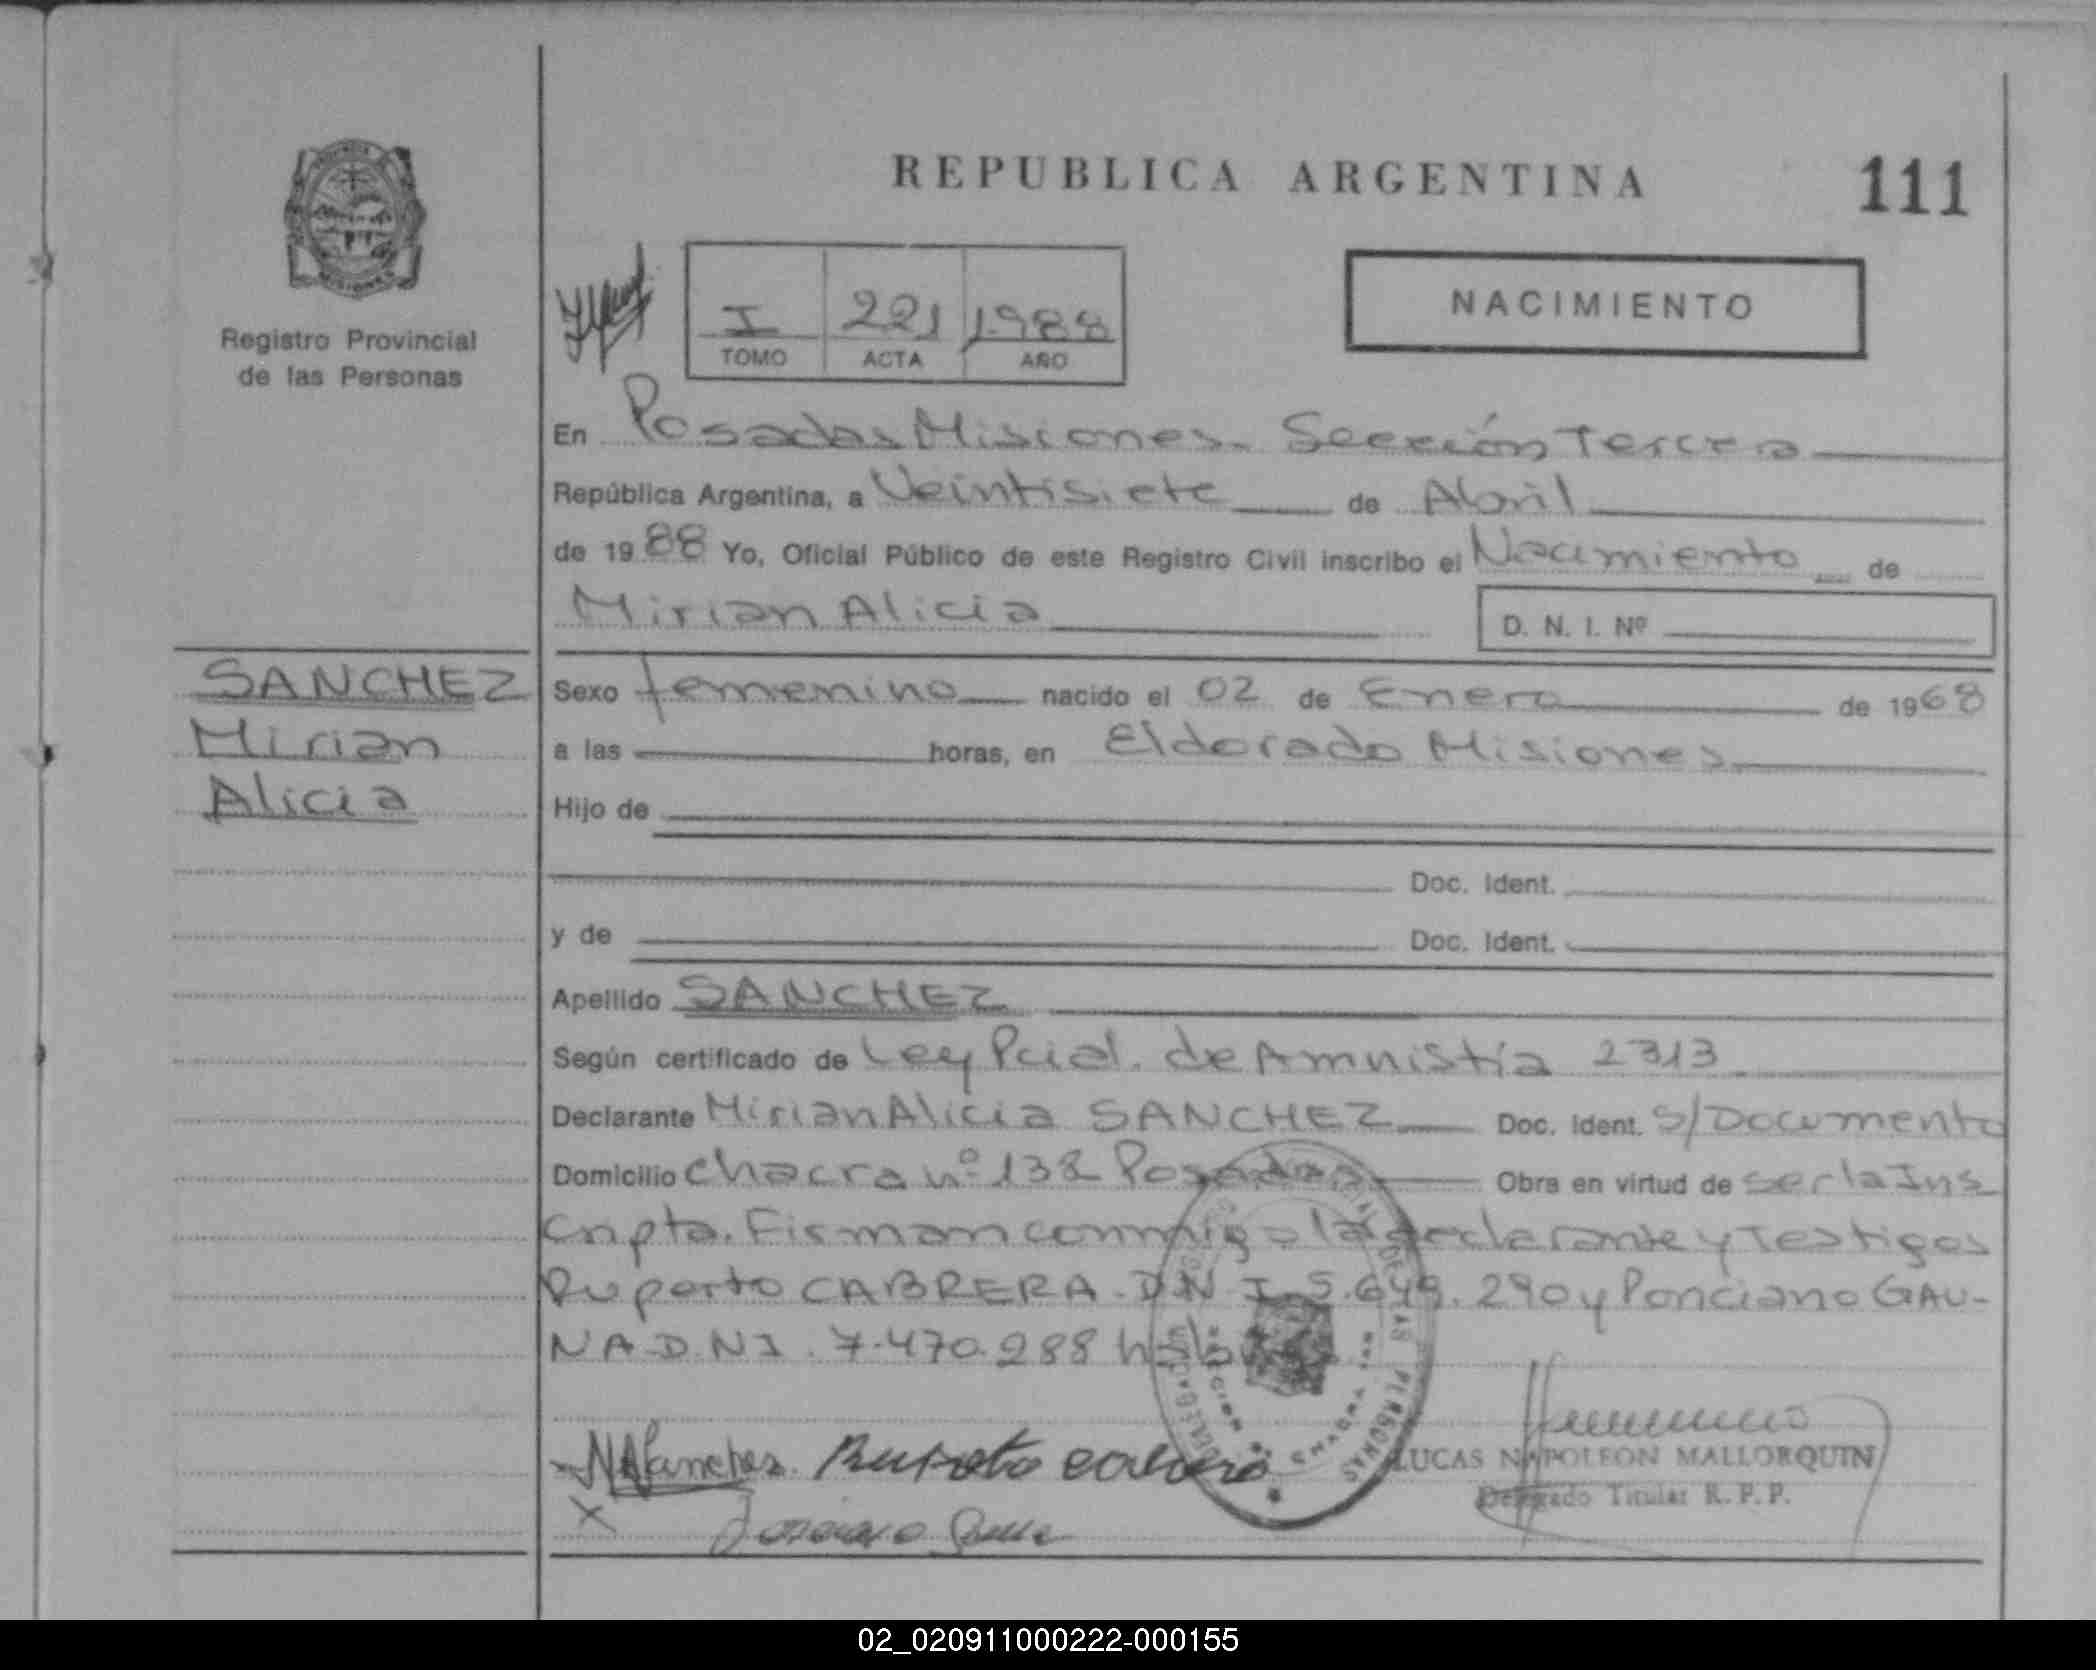 REPUBLICA ARGENTINA
111
Registro Provincial
de las Personas
I 221 1988
TOMO ACTA AÑO
NACIMIENTO
En Posadas Misiones. Sección Tercera
República Argentina, a Veintisiete de Abril
de 1988 Yo, Oficial Público de este Registro Civil inscribo el Nacimiento de
Mirian Alicia
D. N. I. Nº
SANCHEZ
Mirian
Alicia
Sexo femenino nacido el 02 de Enero de 1968
a las horas, en Eldorado Misiones
Hijo de
Doc. Ident.
y de Doc. Ident.
Apellido SANCHEZ
Según certificado de Ley Pcial. de Amnistía 2313
Declarante Mirian Alicia SANCHEZ Doc. Ident. S/Documento
Domicilio chacra nº 138 Posadas Obra en virtud de ser la Ins
cripta. Firman conmigo la declarante y Testigos
Ruperto CABRERA. D.N.I. 5.649.290 y Ponciano GAU-
NA D.N.I. 7.470.288
MASanchez. Ruperto cabrera
LUCAS NAPOLEON MALLORQUIN
Delegado Titular R.P.P.
02_020911000222-000155